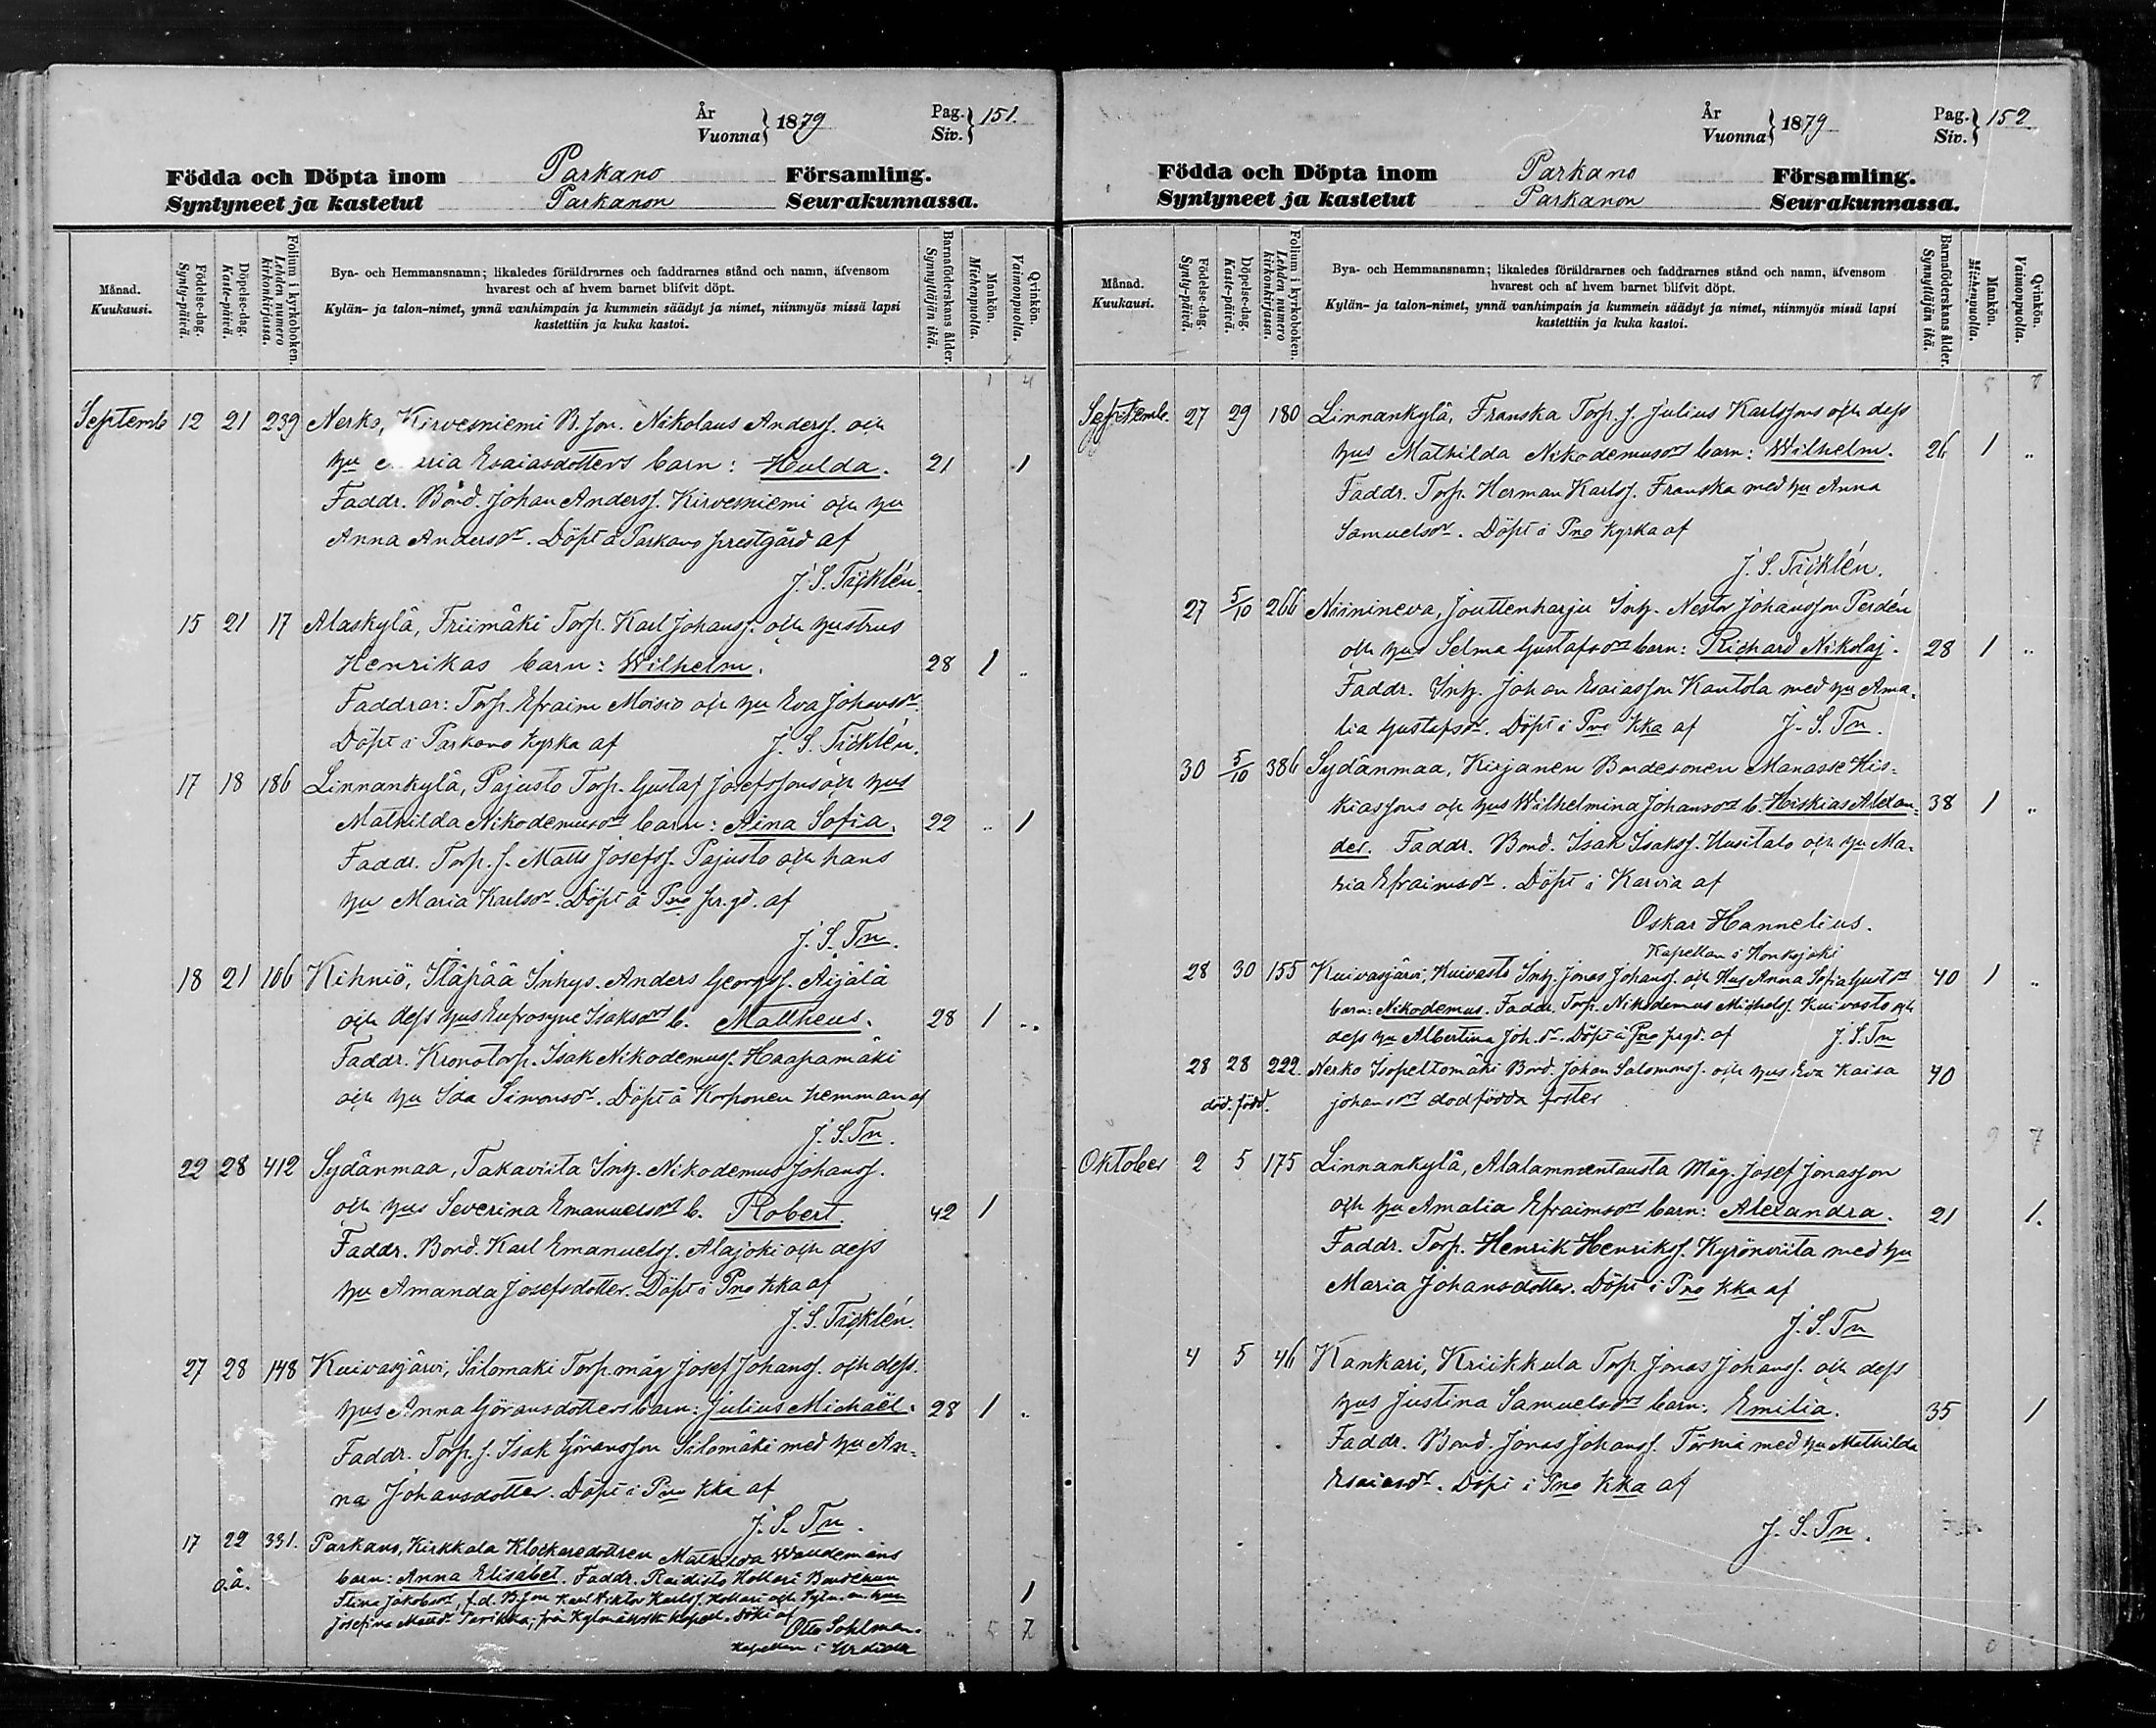 År
Vuonna } 1879
Pag.
Siv. } 151.
Födda och Döpta inom Parkano Församling.
Syntyneet ja kastetut Parkanon Seurakunnassa.
Månad.
Kuukausi.
Födelse-dag.
Synty-päivä.
Döpelse-dag.
Kaste-päivä.
Folium i kyrkoboken.
Lehden numero kirkonkirjassa.
Bya- och Hemmansnamn; likaledes föräldrarnes och faddrarnes stånd och namn, äfvensom
hvarest och af hvem barnet blifvit döpt.
Kylän- ja talon-nimet, ynnä vanhimpain ja kummein säädyt ja nimet, niinmyös missä lapsi
kastettiin ja kuka kastoi.
Barnaföderskans ålder.
Synnyttäjän ikä.
Mankön.
Miehenpuolta.
Qvinkön.
Vaimonpuolta.
1 4
Septemb 12 21 239 Nerko, Kirvesniemi B. son. Nikolaus Anderss. och
hu Maria Esaiasdotters barn: Hulda. 21 1
Faddr. Bond. Johan Anderss. Kirvesniemi och hu
Anna Andersdr. Döpt å Parkano prestgård af
J. S. Ticklén.
15 21 17 Alaskylä, Friimäki Torp. Karl Johanss. och hustrus
Henrikas barn: Wilhelm. 28 1 "
Faddrar: Torp. Efraim Moisio och hu Eva Johansdr.
Döpt i Parkano kyrka af J. S. Ticklén.
17 18 186 Linnankylä, Pajusto Torp. Gustaf Josefssons och hus
Mathilda Nikodemusdrs barn: Aina Sofia. 22 " 1
Faddr. Torp. s. Matts Josefss. Pajusto och hans
hu Maria Karlsdr. Döpt å Pno pr.gd. af
J. S. Tn.
18 21 106 Kihniö, Yläpää Inhys. Anders Georgss. Äijälä
och dess hus Eufrosyne Isaksdrs b. Mattheus. 28 1 "
Faddr. Kronotorp. Isak Nikodemuss. Haapamäki
och hu Ida Simonsdr. Döpt å Korhonen hemman af
J. S. Tn.
22 28 412 Sydänmaa, Takaviita Inh. Nikodemus Johanss.
och hus Severina Emanuelsdrs b. Robert. 42 1
Faddr. Bond. Karl Emanuelss. Alajoki och dess
hu Amanda Josefsdotter. Döpt i Pno kka af
J. S. Ticklén.
27 28 148 Kuivasjärvi, Salomäki Torp. måg Josef Johanss. och dess
hus Anna Göransdotters barn: Julius Michaël. 28 1 "
Faddr. Torp. s. Isak Göransson Salomäki med hu An-
na Johansdotter. Döpt i Pno kka af
J. S. Tn.
17 22 331. Parkano, Kirkkala Klockaredottren Mathilda Wandemans
o.ä. barn: Anna Elisabet. Faddr. Raidisto Hollari
Stina Jakobsdr, f.d. B.son Karl Viktor Karlss. Hollari och
Josefina Mattsdr Parikka, från Döpt af
1
Otto Sohlman.
Kapellan i
5 7
År
Vuonna } 1879
Pag.
Siv. } 152
Födda och Döpta inom Parkano Församling.
Syntyneet ja kastetut Parkanon Seurakunnassa.
Månad.
Kuukausi.
Födelse-dag.
Synty-päivä.
Döpelse-dag.
Kaste-päivä.
Folium i kyrkoboken.
Lehden numero kirkonkirjassa.
Bya- och Hemmansnamn; likaledes föräldrarnes och faddrarnes stånd och namn, äfvensom
hvarest och af hvem barnet blifvit döpt.
Kylän- ja talon-nimet, ynnä vanhimpain ja kummein säädyt ja nimet, niinmyös missä lapsi
kastettiin ja kuka kastoi.
Barnaföderskans ålder.
Synnyttäjän ikä.
Mankön.
Miehenpuolta.
Qvinkön.
Vaimonpuolta.
5 7
Septemb. 27 29 180 Linnankylä, Franska Torp. s. Julius Karlssons och dess
hus Mathilda Nikodemusdrs barn: Wilhelm. 26 1 "
Faddr. Torp. Herman Karlss. Franska med hu Anna
Samuelsdr. Döpt i Pno kyrka af
J. S. Ticklén.
27 5/10 266 Niinineva, Jouttenharju Inh. Nestor Johansson Perdén
och hus Selma Gustafsdrs barn: Richard Nikolaj. 28 1 "
Faddr. Inh. Johan Esaiasson Kantola med hu Ama-
lia Gustafsdr. Döpt i Pno kka af J. S. Tn.
30 5/10 386 Sydänmaa, Kirjanen Bondesonen Manasse His-
kiassons och hus Wilhelmina Johansdrs b. Hiskias Alexan- 38 1 "
der. Faddr. Bond. Isak Isakss. Uusitalo och hu Ma-
ria Efraimsdr. Döpt i Karvia af
Oskar Hannelius.
Kapellan i Honkajoki
28 30 155 Kuivasjärvi, Kuivasto Inh. Jonas Johanss. och Hus Anna Sofia Gustdrs 40 1 "
barn: Nikodemus. Faddr. Torp. Nikodemus Michelss. Kuivasto och
dess hu Albertina Joh.dr. Döpt å Pno prgd. af J. S. Tn
28 28 222. Nerko Isopeltomäki Bond. Johan Salomonss. och hus Eva Kaisa 40
död.född. Johansdrs dödfödda foster
9 7
Oktober 2 5 175 Linnankylä, Alalammentausta Måg. Josef Jonasson
och hu Amalia Efraimsdrs barn: Alexandra. 21 1.
Faddr. Torp. Henrik Henrikss. Kyrönviita med hu
Maria Johansdotter. Döpt i Pno kka af
J. S. Tn
4 5 46 Kankari, Kriikkula Torp. Jonas Johanss. och dess
hus Justina Samuelsdrs barn: Emilia. 35 1
Faddr. Bond. Jonas Johanss. Törmä med hu Mathilda
Esaiasdr. Döpt i Pno kka af
J. S. Tn.
0 2